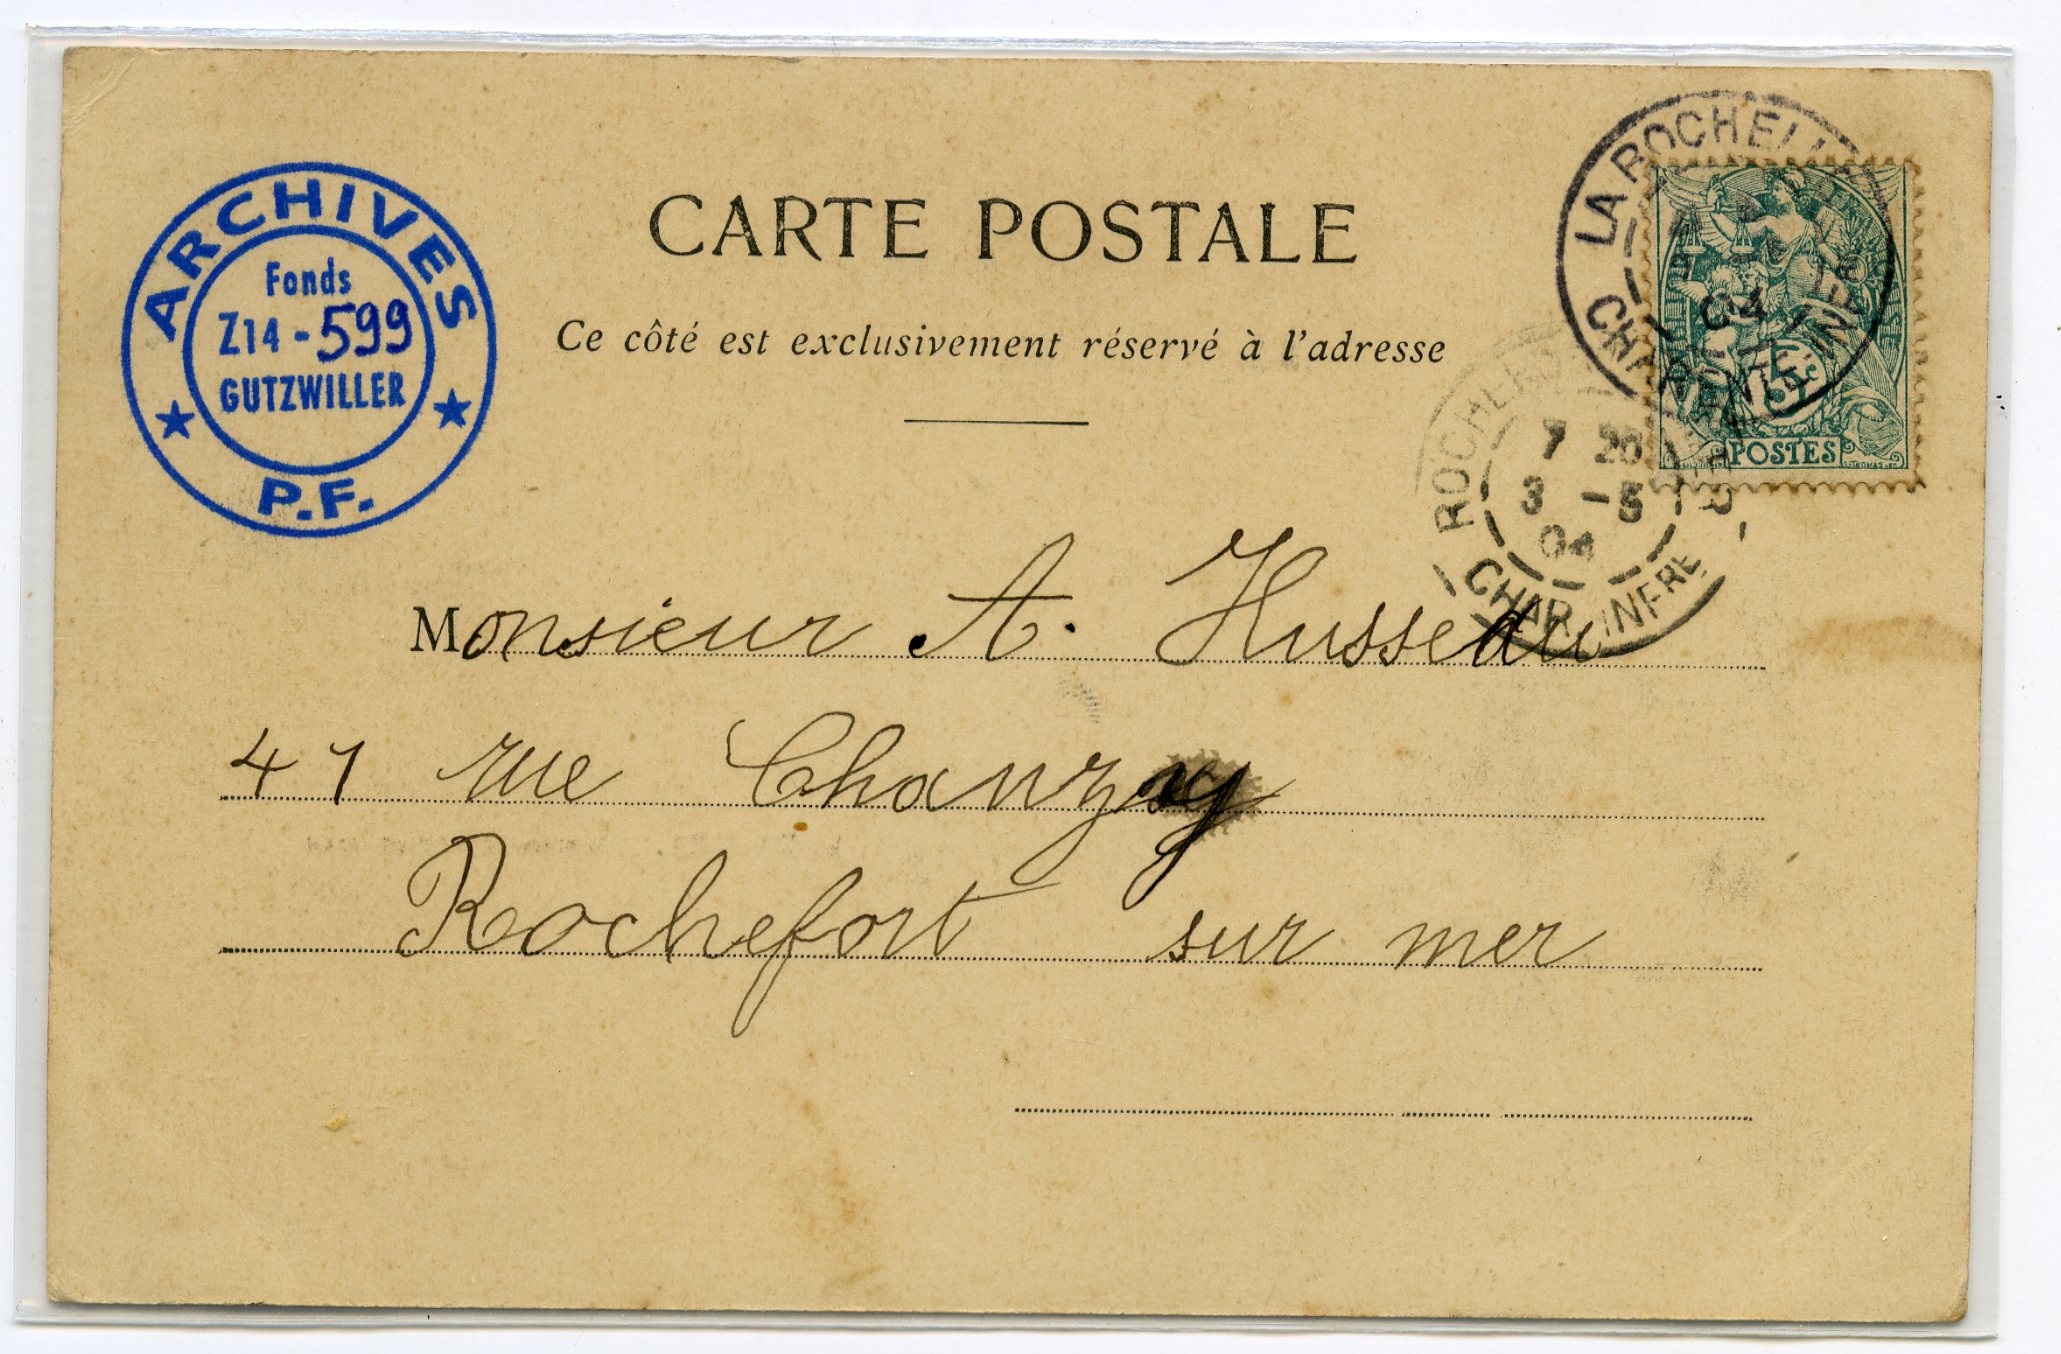 ARCHIVES
Fonds
Z14-599
GUTZWILLER
P.F.
CARTE POSTALE
Ce côté est exclusivement réservé à l'adresse
LA ROCHELLE
04
CHARENTE INFRE
5c
POSTES
ROCHEFORT
7 20
3 -5
04
CHAR. INFRE
Monsieur A. Husseau
41 rue Chanzy
Rochefort sur mer